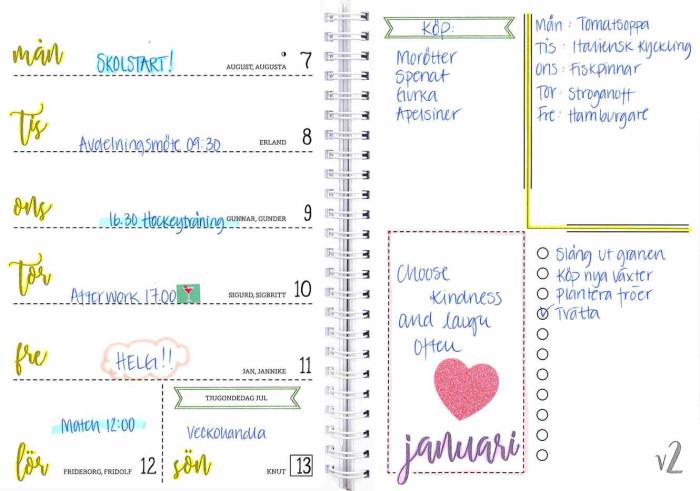 mån
SKOLSTART!
AUGUST, AUGUSTA
7
Tis
Avdelningsmöte 09:30
ERLAND
8
ons
16.30 Hockeyträning
GUNNAR, GUNDER
9
Tor
Afterwork 17.00
SIGURD, SIGBRITT
10
fre
HELG!!
JAN, JANNIKE
11
Match 12:00
lör
FRIDEBORG, FRIDOLF
12
TJUGONDEDAG JUL
Veckohandla
sön
KNUT
13
KÖP:
Morötter
Spenat
Gurka
Apelsiner
Mån: Tomatsoppa
Tis: Italiensk Kyckling
Ons: Fiskpinnar
Tor: Stroganoff
Fre: Hamburgare
Choose
kindness
and laugh
Often
januari
Släng ut granen
Köp nya växter
Plantera fröer
Tvätta
v2